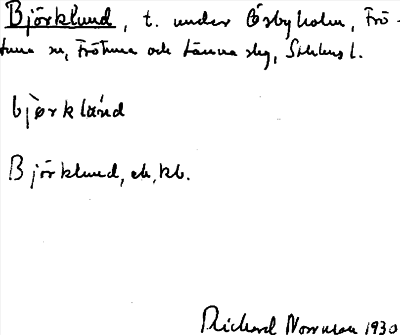 Björklund, t. under Ösbyholm, Frö-
tuna sn, Frötuna och Länna skg, Sthlms l.
bjò̀rkland
Björklund, ek, kb.
Richard Norrman 1930